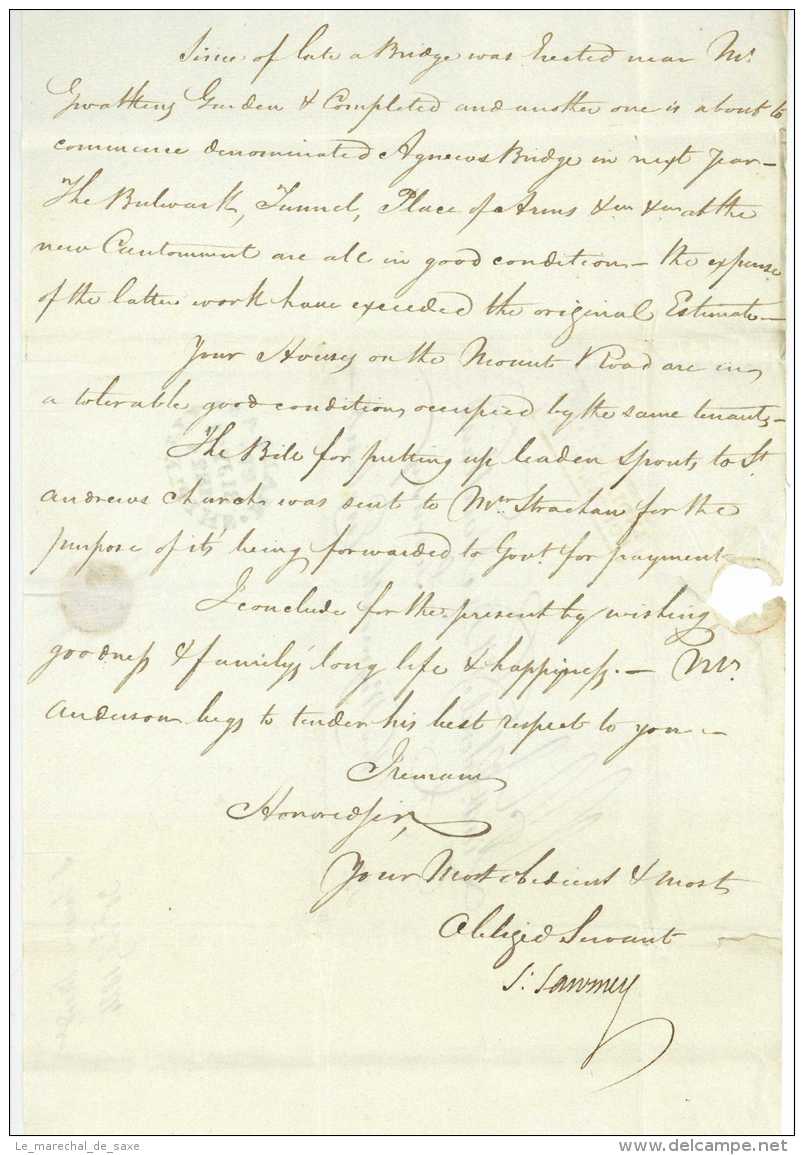 Since of late a Bridge was Erected near Mr.
Gwatkens Garden & Completed and another one is about to
commence denominated Agnews Bridge in next year –
The Bulwark, Tunnel, Place of Arms &ca &ca at the
new Cantonment are all in good condition – the expense
of the latter work have exceeded the original Estimate –
Your Houses on the Mount Road are in
a tolerable good condition, occupied by the same tenants –
The Bill for putting up leaden spouts to St.
Andrews Church was sent to Mr. Strachan for the
purpose of it's being forwarded to Govt. for payment
I conclude for the present by wishing
goodness & family's long life & happiness. – Mr.
Anderson begs to tender his best respect to you –
I remain,
Honored sir,
Your Most obedient & most
Obliged Servant
Le_marechal_de_saxe
delcampe.net